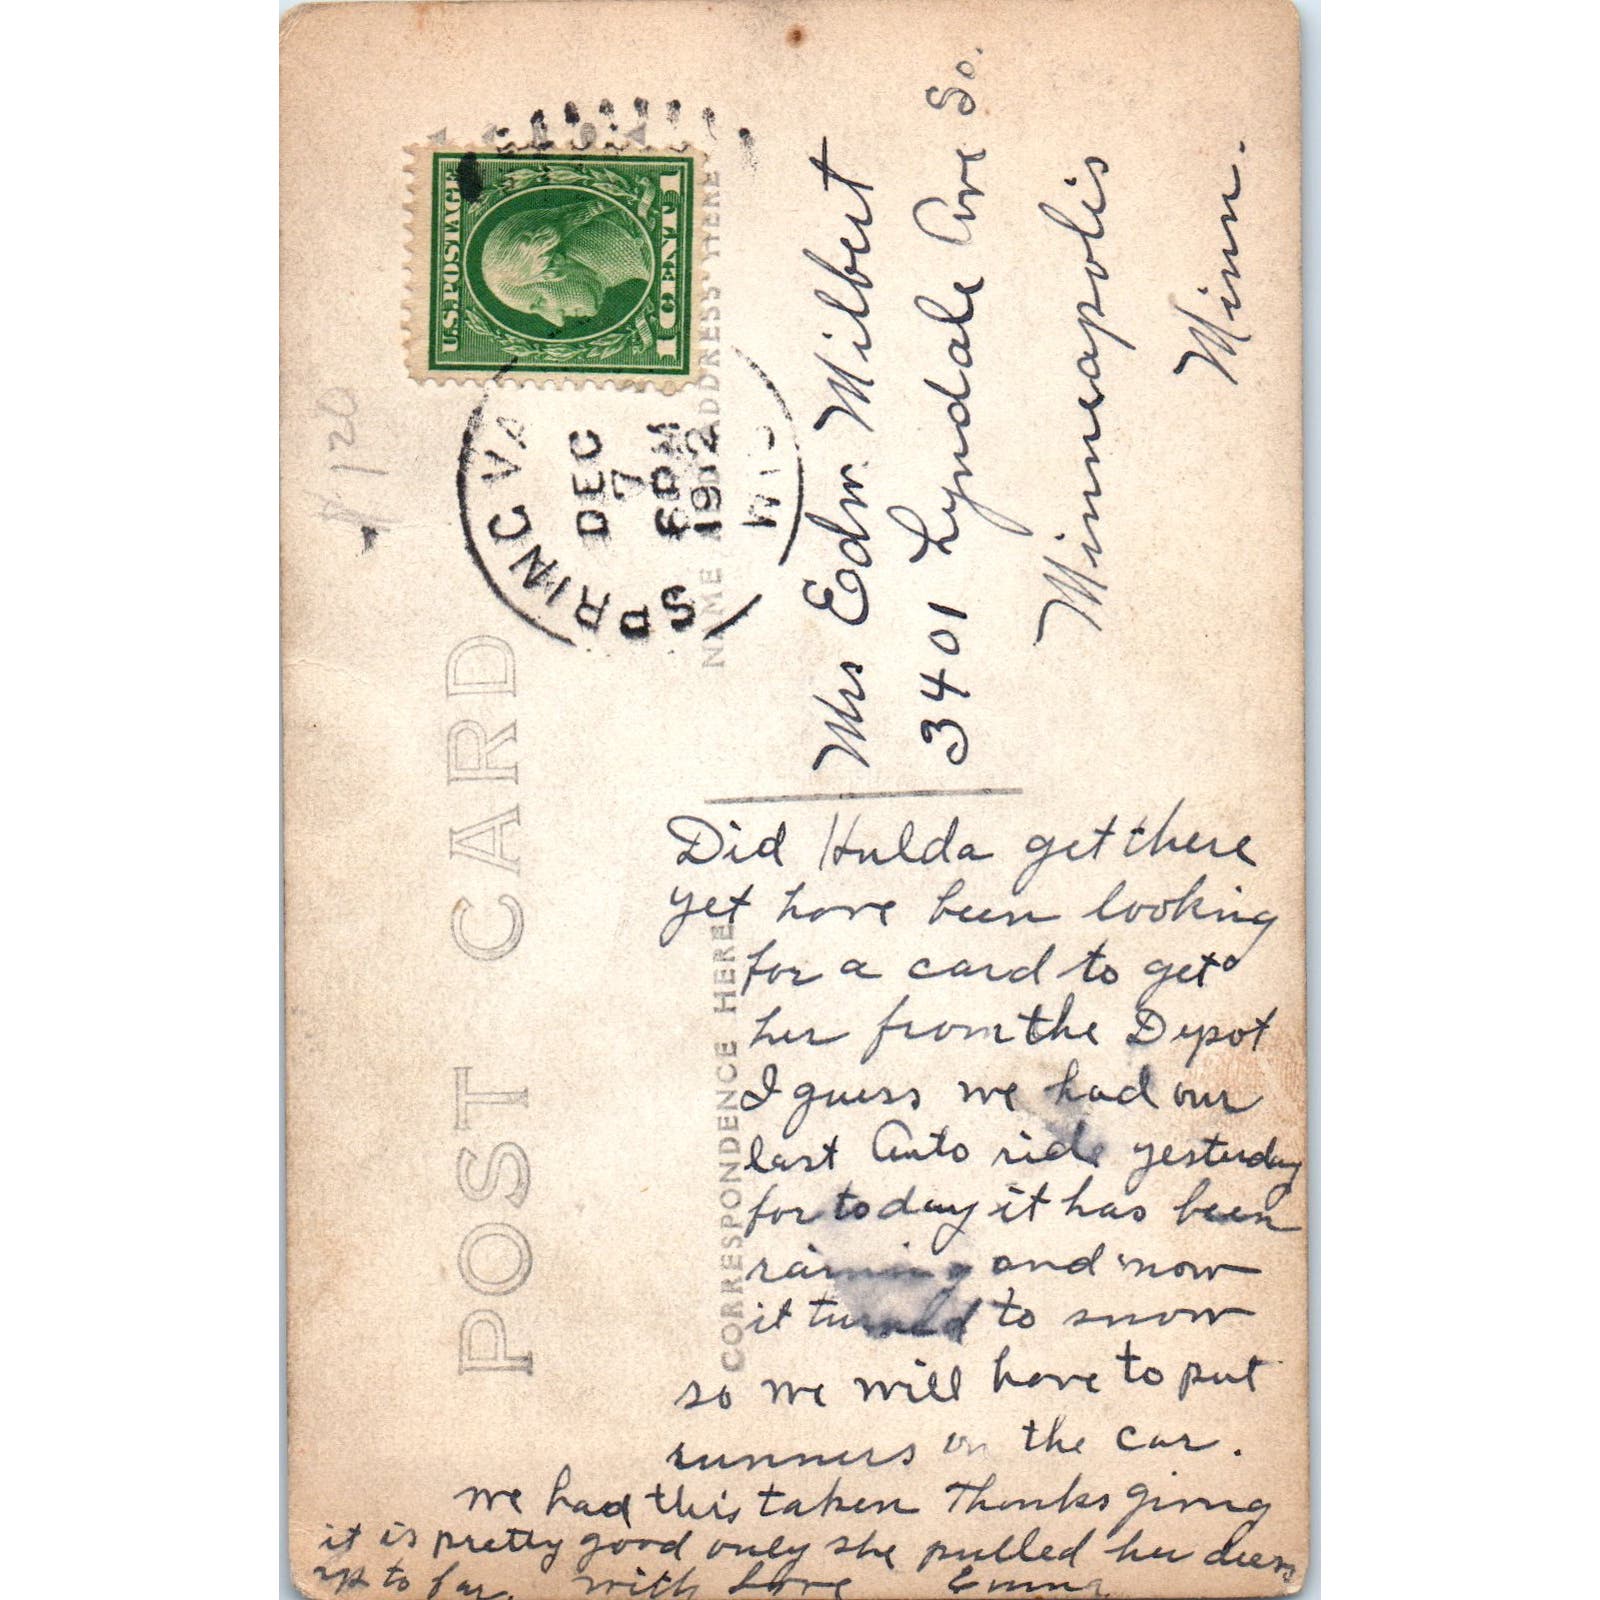 POST CARD
$120
U.S. POSTAGE
1 CENT 1
SPRING VA
DEC
7
6 PM
1912
WIS
NAME AND ADDRESS HERE
Mrs Edw. Milbert
3401 Lyndale Ave So.
Minneapolis
Minn.
CORRESPONDENCE HERE
Did Hulda get there
yet have been looking
for a card to get
her from the Depot
I guess we had our
last Auto ride yesterday
for today it has been
raining and now
it turned to snow
so we will have to put
runners on the car.
we had this taken Thanksgiving
it is pretty good only she pulled her dress
up to far. With Love Emma